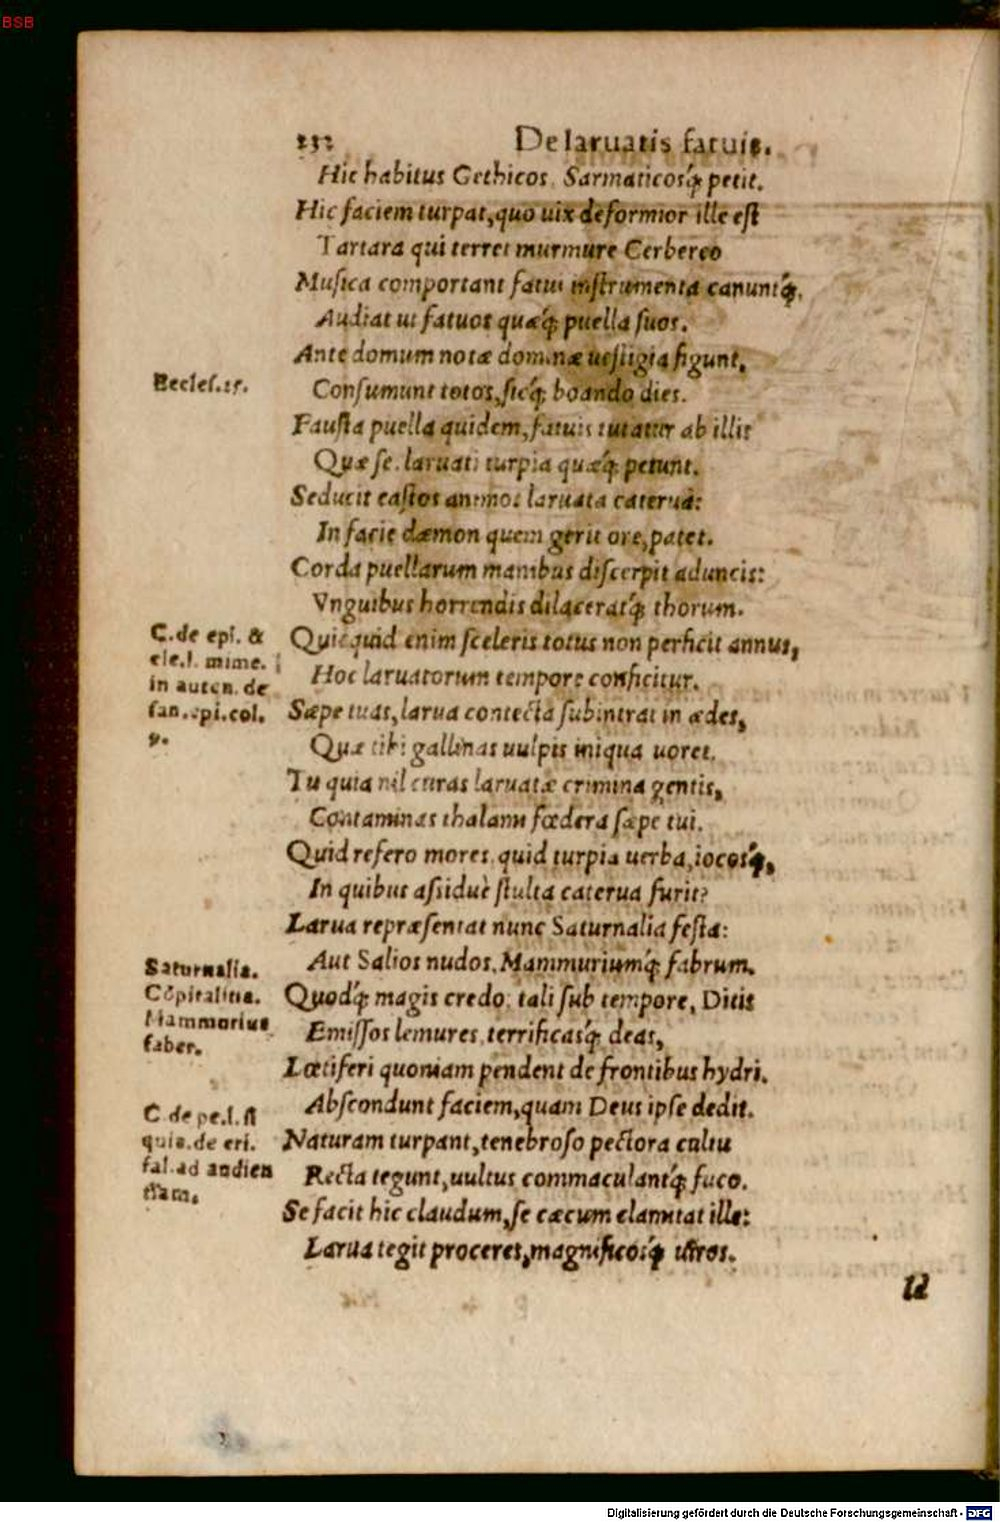 BSB
232 De laruatis fatuis.
Hic habitus Gethicos, Sarmaticosq́; petit.
Hic faciem turpat, quo uix deformior ille est
Tartara qui terret murmure Cerbereo
Musica comportant fatui instrumenta canuntq́;,
Audiat ut fatuos quæq́; puella suos.
Ante domum notæ dominæ uestigia figunt,
Eccles.
Consumunt totos, sicq́; boando dies.
Fausta puella quidem, fatuis tutatur ab illis
Quæ se, laruati turpia quæq́; petunt.
Seducit castos animos laruata caterua:
In facie dæmon quem gerit ore, patet.
Corda puellarum manibus discerpit aduncis:
Vnguibus horrendis dilaceratq́; thorum.
C. de epi. &
cle. l. mime.
in auten. de
san. epi. col.
9.
Quicquid enim sceleris totus non perficit annus,
Hoc laruatorum tempore conficitur.
Sæpe tuas, larua contecta subintrat in ædes,
Quæ tibi gallinas uulpis iniqua uoret.
Tu quia nil curas laruatæ crimina gentis,
Contaminas thalami fœdera sæpe tui.
Quid refero mores, quid turpia uerba, iocosq́;,
In quibus assiduè stulta caterua furit?
Larua repræsentat nunc Saturnalia festa:
Aut Salios nudos, Mammuriumq́; fabrum.
Saturnalia.
Cōpitalitia.
Mammorius
faber.
Quodq́; magis credo, tali sub tempore, Ditis
Emissos lemures, terrificasq́; deas,
Lœtiferi quoniam pendent de frontibus hydri.
Abscondunt faciem, quam Deus ipse dedit.
C. de pe. l. si
quis. de cri.
fal. ad audien
tiam.
Naturam turpant, tenebroso pectora cultu
Recta tegunt, uultus commaculantq́; fuco.
Se facit hic claudum, se cæcum clamitat ille:
Larua tegit proceres, magnificosq́; uiros.
Id
Digitalisierung gefördert durch die Deutsche Forschungsgemeinschaft - DFG